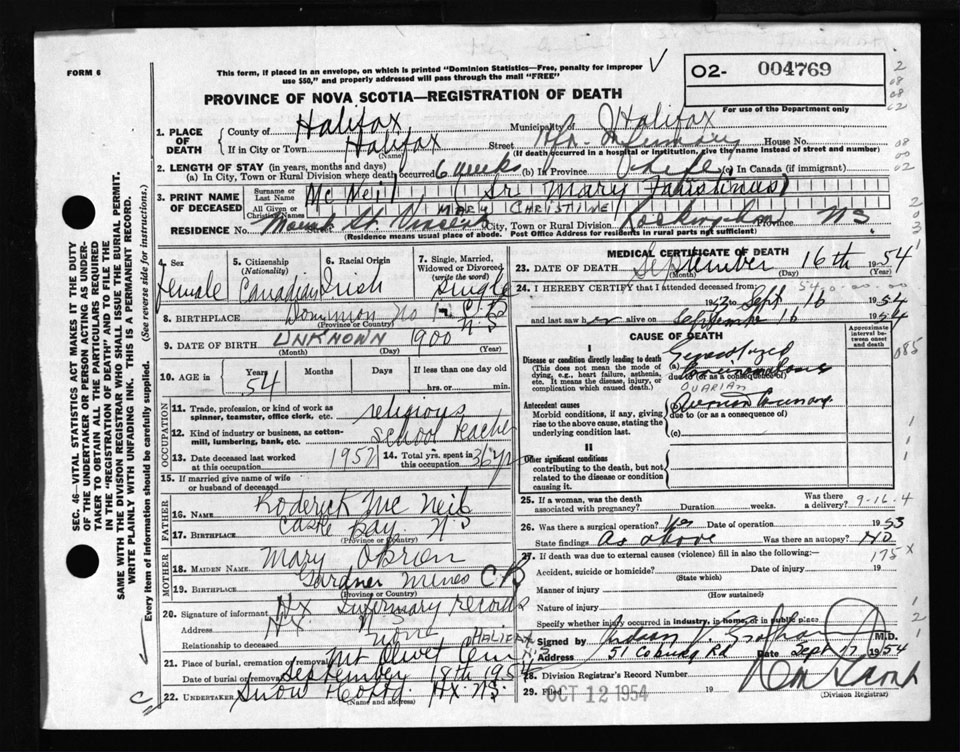 FORM 6
This form, if placed in an envelope, on which is printed "Dominion Statistics—Free, penalty for improper
use $50," and properly addressed will pass through the mail "FREE"
O2- 004769
PROVINCE OF NOVA SCOTIA—REGISTRATION OF DEATH
For use of the Department only
1. PLACE OF DEATH
County of Halifax Municipality of Halifax
If in City or Town Halifax Street Hx. Infirmary House No.
(Name) (If death occurred in a hospital or institution, give the name instead of street and number)
2. LENGTH OF STAY (in years, months and days)
(a) In City, Town or Rural Division where death occurred 6 weeks (b) in Province life (c) in Canada (if immigrant)
3. PRINT NAME OF DECEASED
Surname or Last Name Mc Neil (Sr. Mary
All Given or Christian Names MARY CHRISTINE
RESIDENCE No. Mount St Vincent City, Town or Rural Division Rockingham Province NS
(Residence means usual place of abode. Post Office Address for residents in rural parts not sufficient)
4. Sex Female
5. Citizenship (Nationality) Canadian
6. Racial Origin Irish
7. Single, Married, Widowed or Divorced (write the word) Single
8. BIRTHPLACE Dominion No 1 C.B. N.S.
(Province or Country)
9. DATE OF BIRTH UNKNOWN 1900
(Month) (Day) (Year)
10. AGE in Years 54 Months Days If less than one day old
hrs. or min.
OCCUPATION
11. Trade, profession, or kind of work as spinner, teamster, office clerk, etc. religious
12. Kind of industry or business, as cotton-mill, lumbering, bank, etc. School teacher
13. Date deceased last worked at this occupation 1952
14. Total yrs. spent in this occupation 36 yrs
15. If married give name of wife or husband of deceased
FATHER
16. NAME Roderick Mc Neil
17. BIRTHPLACE Castle Bay N.S
(Province or Country)
MOTHER
18. MAIDEN NAME Mary O'Brien
19. BIRTHPLACE Gardner Mines C B
(Province or Country)
20. Signature of informant Hx Infirmary records
Address Hx. N.S
Relationship to deceased none
HALIFAX N.S
21. Place of burial, cremation or removal Mt Olivet Cem
Date of burial or removal September 18th 1954
22. UNDERTAKER Snow Hx. N.S.
(Name and address)
MEDICAL CERTIFICATE OF DEATH
23. DATE OF DEATH September 16th 1954
(Month) (Day) (Year)
24. I HEREBY CERTIFY that I attended deceased from:
to Sept 16 1954
and last saw her alive on September 16 1954
CAUSE OF DEATH
Approximate interval between onset and death
I
Disease or condition directly leading to death
(This does not mean the mode of dying, e.g., heart failure, asthenia, etc. It means the disease, injury, or complication which caused death.)
(a) Generalized
due to (or as a consequence of)
OVARIAN
Antecedent causes
Morbid conditions, if any, giving rise to the above cause, stating the underlying condition last.
(b)
due to (or as a consequence of)
(c)
II
Other significant conditions
contributing to the death, but not related to the disease or condition causing it.
25. If a woman, was the death associated with pregnancy? Duration weeks. Was there a delivery?
9-16-4
26. Was there a surgical operation? Yes Date of operation 1953
State findings As above Was there an autopsy? NO
175 x
27. If death was due to external causes (violence) fill in also the following:
Accident, suicide or homicide? Date of injury 19
(State which)
Manner of injury
(How sustained)
Nature of injury
Specify whether injury occurred in industry, in home, or in public place
Signed by M.D.
Address 51 Coburg Rd Date Sept 17 1954
28. Division Registrar's Record Number
29. Filed OCT 12 1954 19
(Division Registrar)
SEC. 46—VITAL STATISTICS ACT MAKES IT THE DUTY
OF THE UNDERTAKER OR PERSON ACTING AS UNDER-
TAKER TO OBTAIN ALL THE PARTICULARS REQUIRED
IN THE "REGISTRATION OF DEATH" AND TO FILE THE
SAME WITH THE DIVISION REGISTRAR WHO SHALL ISSUE THE BURIAL PERMIT.
WRITE PLAINLY WITH UNFADING INK. THIS IS A PERMANENT RECORD.
Every item of information should be carefully supplied. (See reverse side for instructions.)